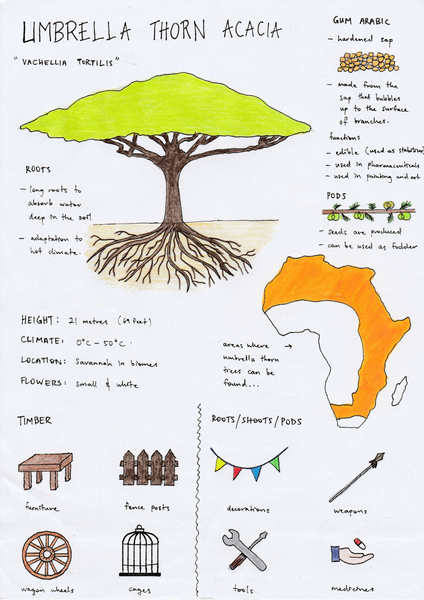 UMBRELLA THORN ACACIA
"VACHELLIA TORTILIS"
GUM ARABIC
- hardened sap
- made from the
sap that bubbles
up to the surface
of branches.
functions
- edible (used as stabilizer)
- used in pharmaceuticals
- used in painting and art
PODS
- seeds are produced
- can be used as fodder
ROOTS
- long roots to
absorb water
deep in the soil
- adaptation to
hot climate.
HEIGHT: 21 metres (69 feet)
CLIMATE: 0°C - 50°C.
LOCATION: Savannah in biomes
FLOWERS: Small & white
areas where →
umbrella thorn
trees can be
found...
TIMBER
furniture
fence posts
wagon wheels
cages
ROOTS/SHOOTS/PODS
decorations
weapons
tools
medicines